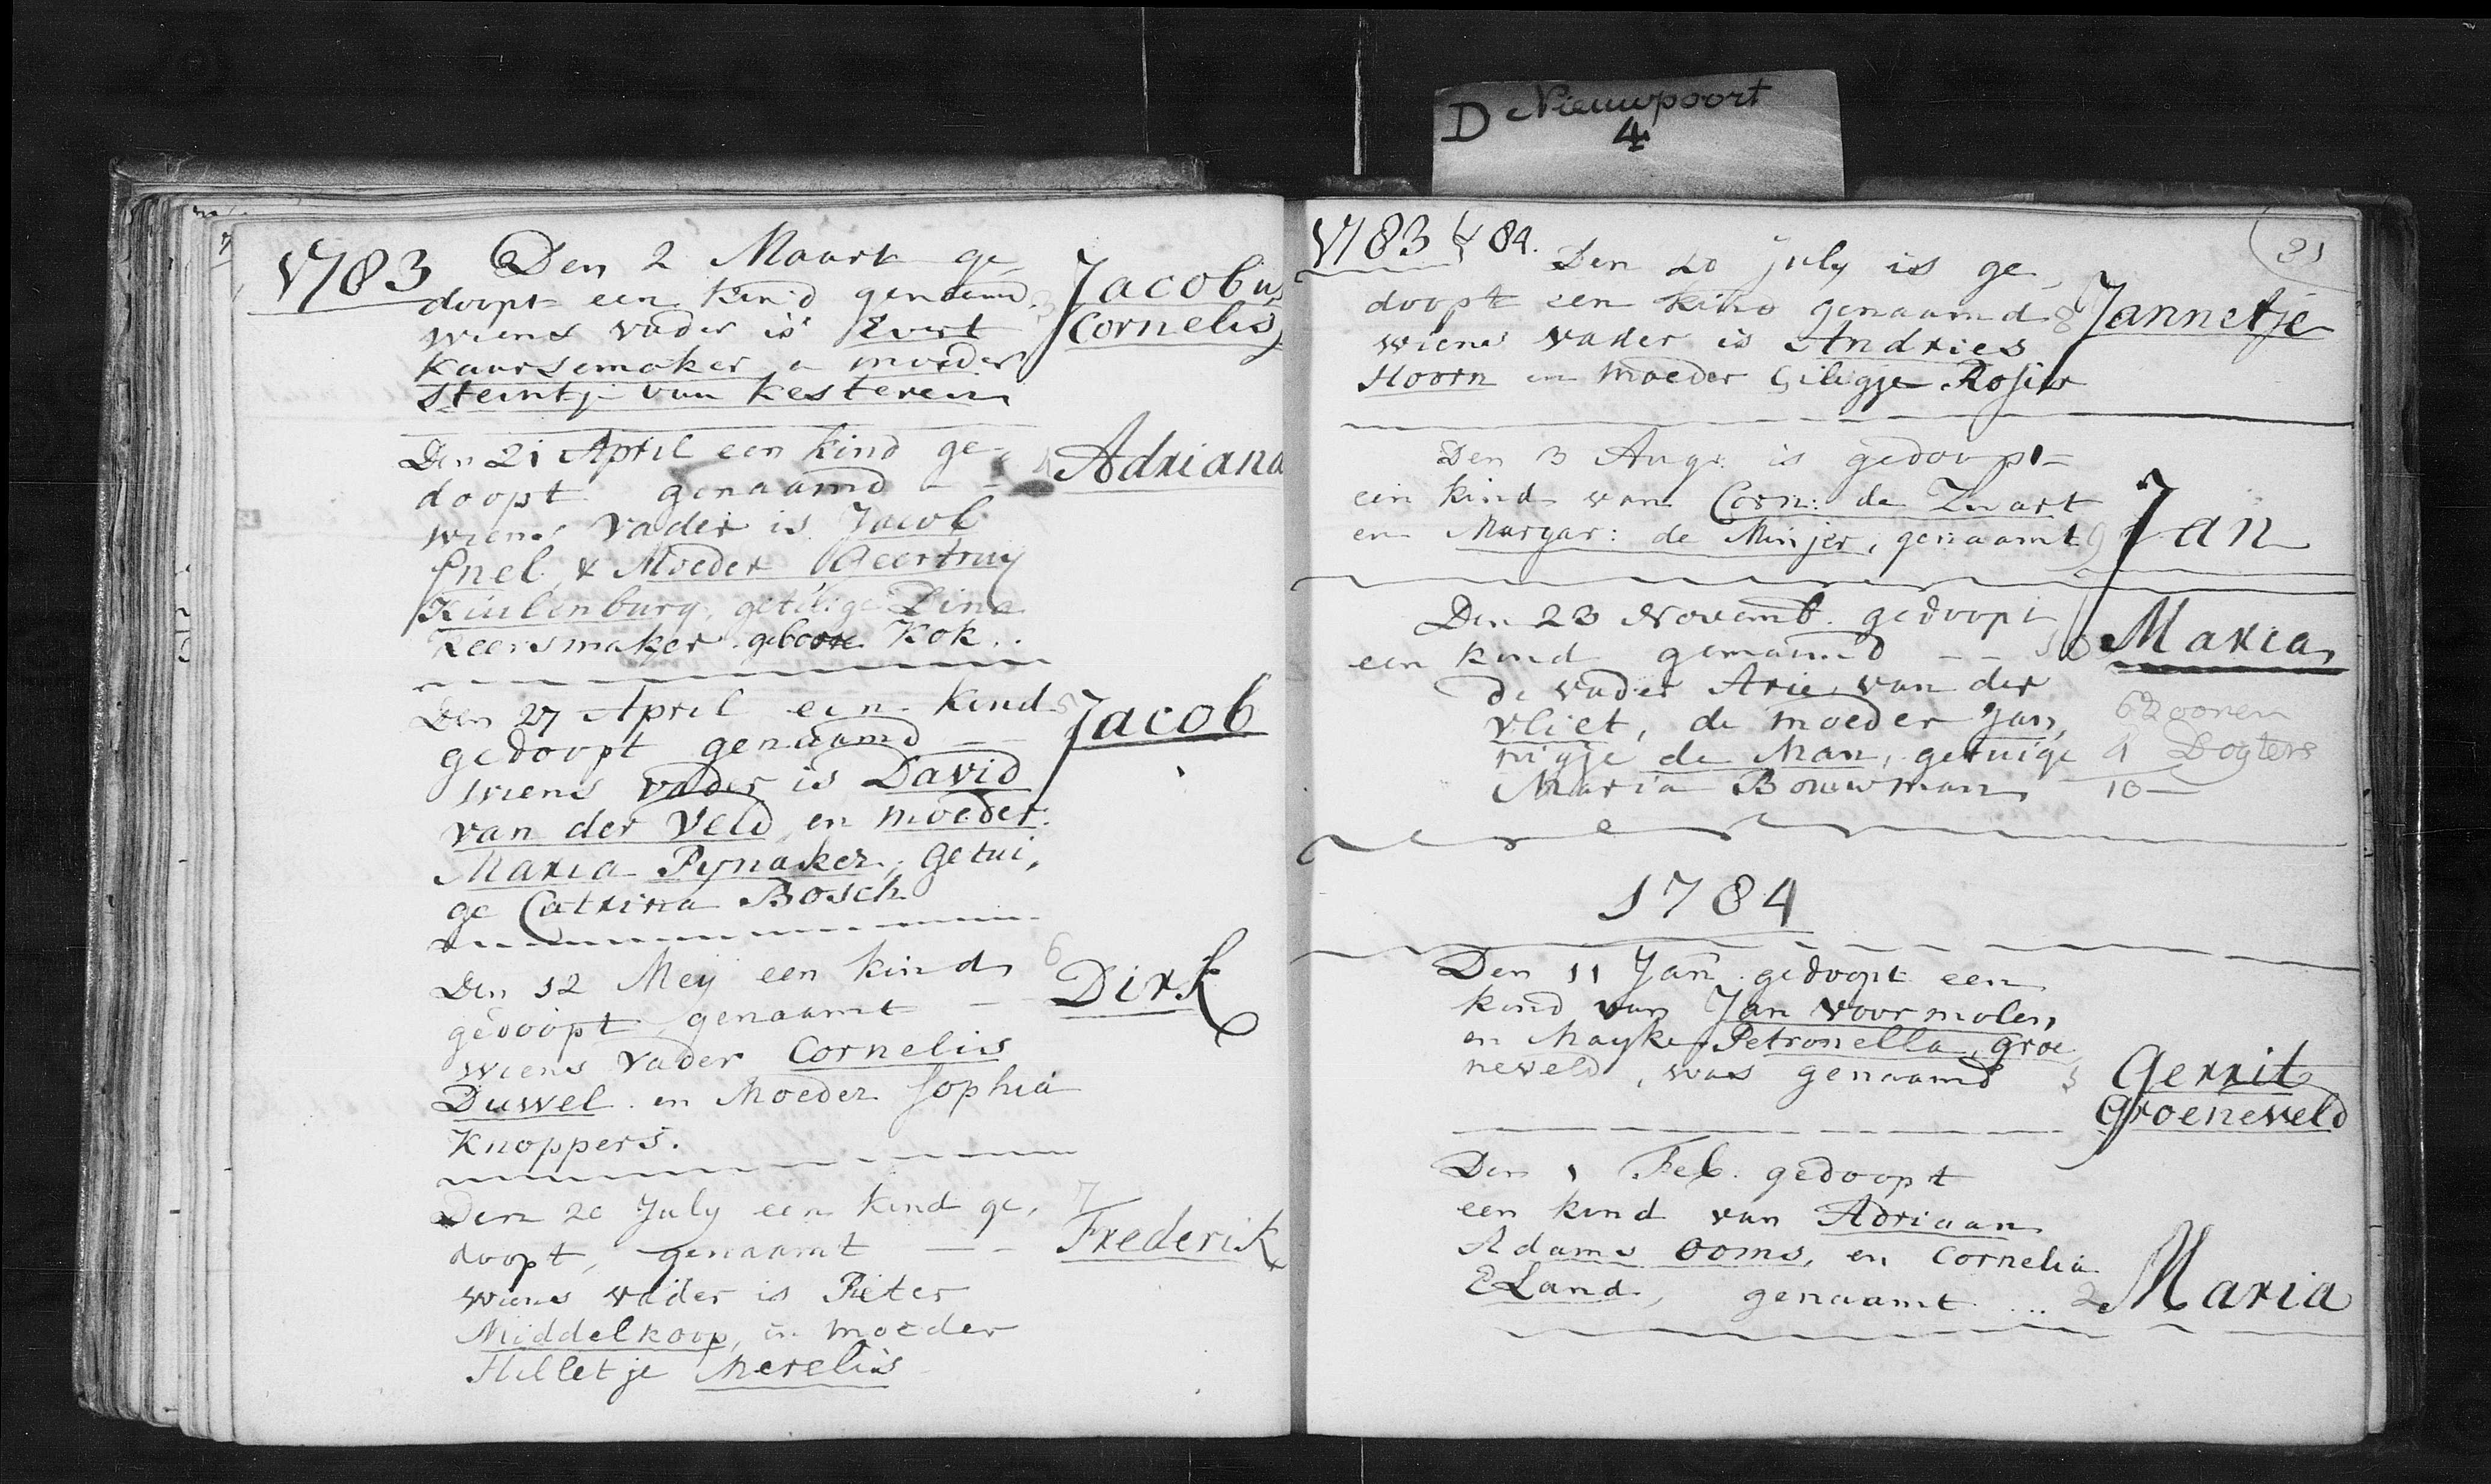 D Nieuwpoort
4
1783
Den 2 Maart ge
doopt een kind genaamd 3 Jacobus
wiens vader is Evert Cornelis
Kaarsemaker en moeder
Steintje van Kesteren
Den 21 April een kind ge-
doopt genaamd - - 4 Adriana
wiens vader is Jacob
Snel & Moeder Geertruy
Kuilenburg, getuige Dina
Keersmaker geboore Kok.
Den 27 April een kind 5 Jacob
gedoopt genaamd - -
wiens vader is David
van der Veld en moeder
Maria Pynaker, getui,
ge Catrina Bosch
Den 12 Mey een kind 6
gedoopt genaamt - - Dirk
wiens vader Cornelis
Duwel en Moeder Sophia
Knoppers.
Den 20 July een kind ge, 7
doopt, genaamt - - Frederik
wiens vader is Pieter
Middelkoop, en moeder
Hilletje Merelis
1783 & 84.
31
Den 20 July is ge
doopt een kind genaamd 8 Jannetje
wiens vader is Andries
Hoorn en moeder Rosier
Den 3 Aug. is gedoopt
een kind van Corn: de Zwart
en Margar: de Minjer, genaamt 9 Jan
Den 23 Novemb. gedoopt
een kind genaamd - - 10 Maria
de vader Arie van der
vliet, de moeder Jan,
nigje de Man, getuige
Maria Bouwman
6 Zoonen
4 Dogters
10
1784
Den 11 Jan. gedoopt een
kind van Jan Voormolen,
en Mayke Petronella Groe
neveld, was genaamd 1 Gerrit
Groeneveld
Den 1 Feb. gedoopt
een kind van Adriaan
Adams Ooms, en Cornelia
ELand, genaamt ... 2 Maria